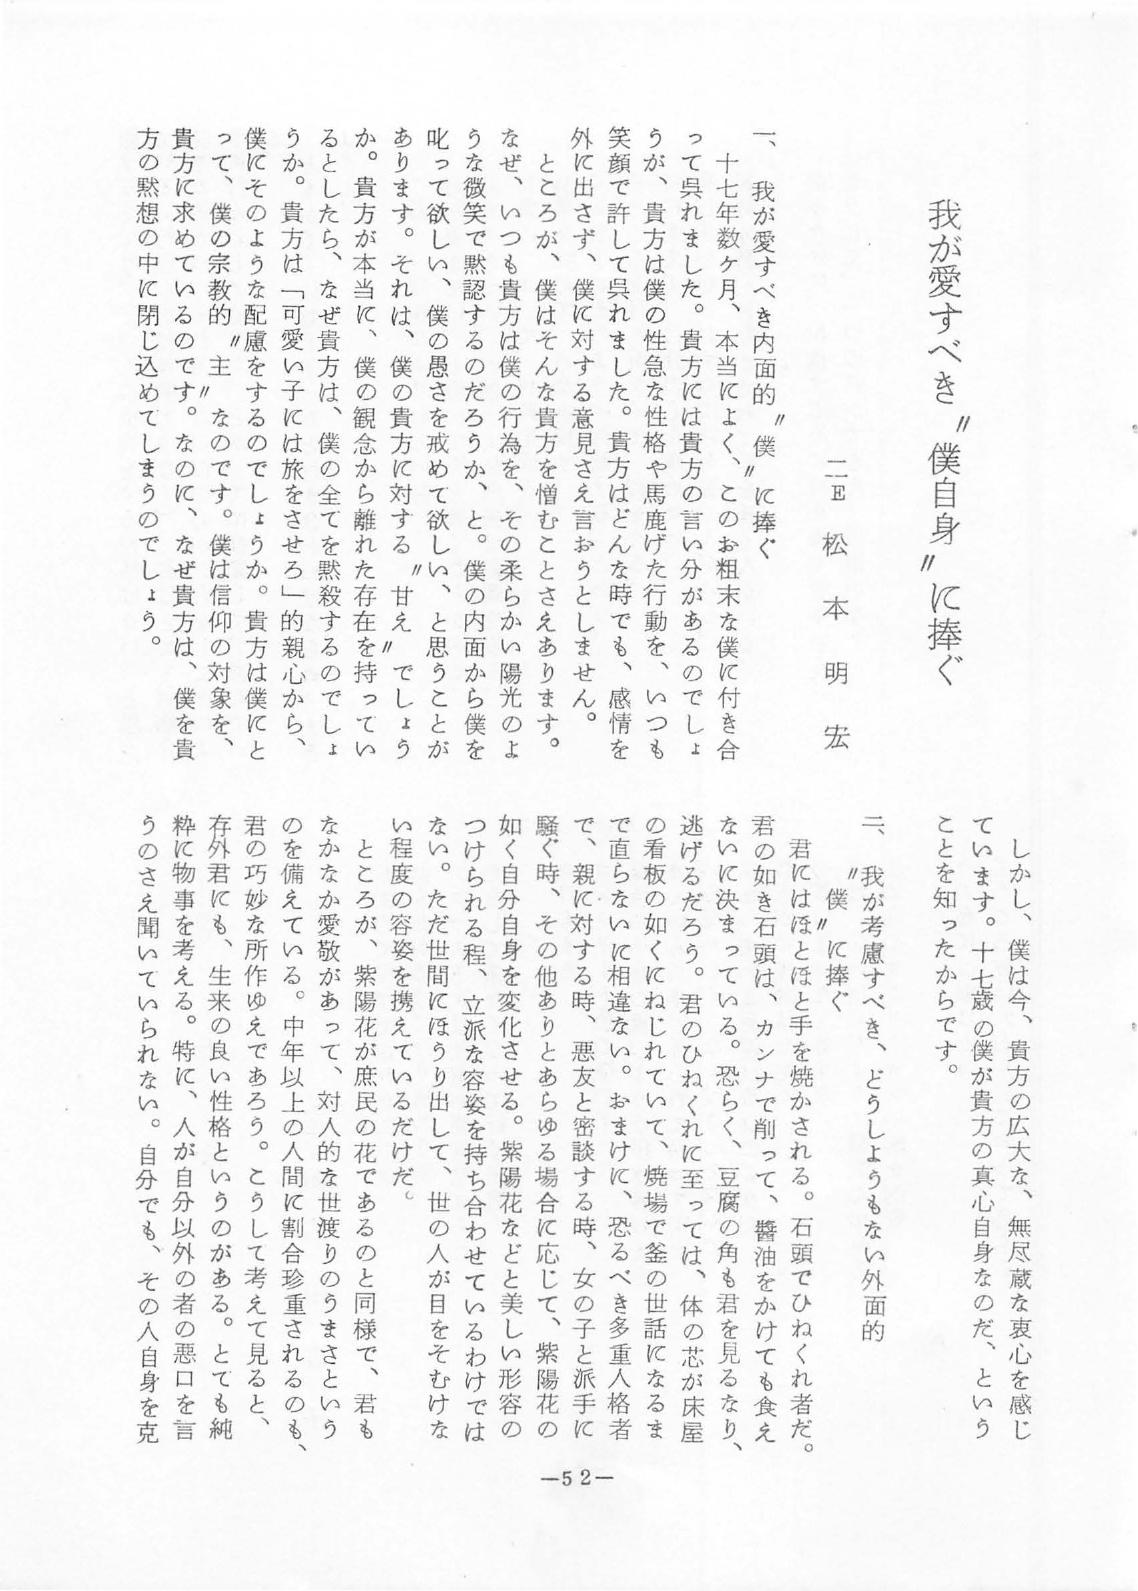 我が愛すべき〝僕自身〟に捧ぐ
二E 松本明宏
一、我が愛すべき内面的〝僕〟に捧ぐ
十七年数ヶ月、本当によく、このお粗末な僕に付き合
って呉れました。貴方には貴方の言い分があるのでしょ
うが、貴方は僕の性急な性格や馬鹿げた行動を、いつも
笑顔で許して呉れました。貴方はどんな時でも、感情を
外に出さず、僕に対する意見さえ言おうとしません。
ところが、僕はそんな貴方を憎むことさえあります。
なぜ、いつも貴方は僕の行為を、その柔らかい陽光のよ
うな微笑で黙認するのだろうか、と。僕の内面から僕を
叱って欲しい、僕の愚さを戒めて欲しい、と思うことが
あります。それは、僕の貴方に対する〝甘え〟でしょう
か。貴方が本当に、僕の観念から離れた存在を持ってい
るとしたら、なぜ貴方は、僕の全てを黙殺するのでしょ
うか。貴方は「可愛い子には旅をさせろ」的親心から、
僕にそのような配慮をするのでしょうか。貴方は僕にと
って、僕の宗教的〝主〟なのです。僕は信仰の対象を、
貴方に求めているのです。なのに、なぜ貴方は、僕を貴
方の黙想の中に閉じ込めてしまうのでしょう。
しかし、僕は今、貴方の広大な、無尽蔵な衷心を感じ
ています。十七歳の僕が貴方の真心自身なのだ、という
ことを知ったからです。
二、我が考慮すべき、どうしようもない外面的
〝僕〟に捧ぐ
君にはほとほと手を焼かされる。石頭でひねくれ者だ。
君の如き石頭は、カンナで削って、醬油をかけても食え
ないに決まっている。恐らく、豆腐の角も君を見るなり、
逃げるだろう。君のひねくれに至っては、体の芯が床屋
の看板の如くにねじれていて、焼場で釜の世話になるま
で直らないに相違ない。おまけに、恐るべき多重人格者
で、親に対する時、悪友と密談する時、女の子と派手に
騒ぐ時、その他ありとあらゆる場合に応じて、紫陽花の
如く自分自身を変化させる。紫陽花などと美しい形容の
つけられる程、立派な容姿を持ち合わせているわけでは
ない。ただ世間にほうり出して、世の人が目をそむけな
い程度の容姿を携えているだけだ。
ところが、紫陽花が庶民の花であるのと同様で、君も
なかなか愛敬があって、対人的な世渡りのうまさという
のを備えている。中年以上の人間に割合珍重されるのも、
君の巧妙な所作ゆえであろう。こうして考えて見ると、
存外君にも、生来の良い性格というのがある。とても純
粋に物事を考える。特に、人が自分以外の者の悪口を言
うのさえ聞いていられない。自分でも、その人自身を克
—52—